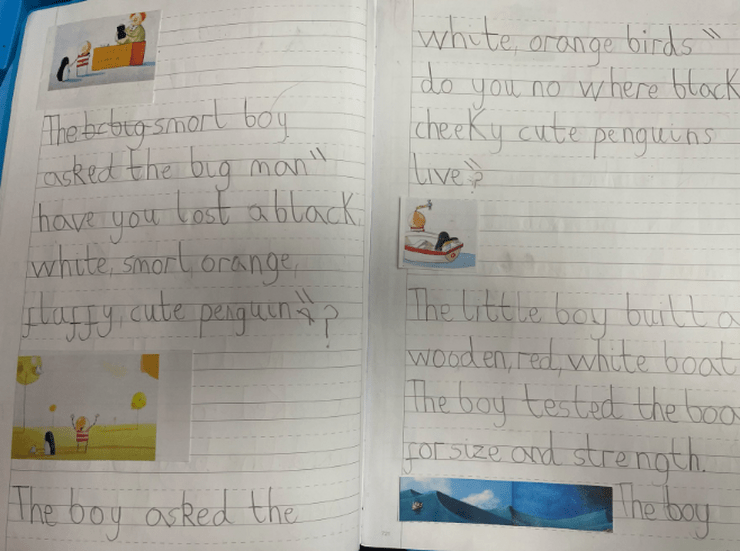 The bcbig smorl boy
asked the big man"
have you lost a black
white, smorl, orange,
fluffy, cute penguin"?
The boy asked the
white, orange birds"
do you no where black
cheeky cute penguins
live"?
The little boy built a
wooden, red, white boat
The boy tested the boa
for size and strength.
The boy